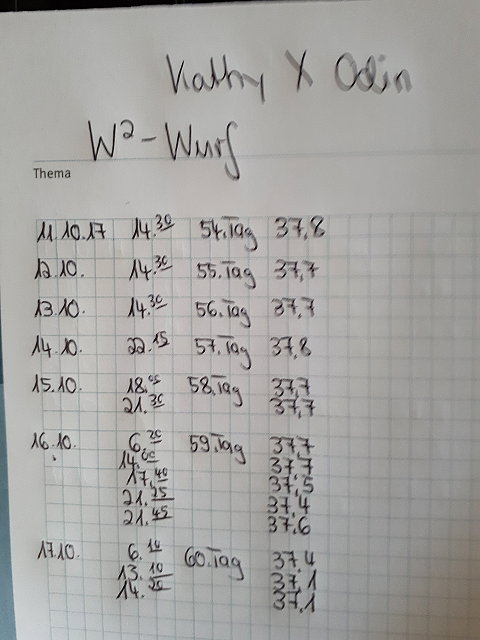 Kathy X Odin
W²-Wurf
Thema
11.10.17 14.30 54.Tag 37,8
12.10. 14.30 55.Tag 37,7
13.10. 14.30 56.Tag 37,7
14.10. 22.15 57.Tag 37,8
15.10. 18.05 58.Tag 37,7
21.30 37,7
16.10. 6.20 59.Tag 37,7
14.00 37,7
17.40 37,5
21.25 37,4
21.45 37,6
17.10. 6.10 60.Tag 37,4
13.10 37,1
14.20 37,1